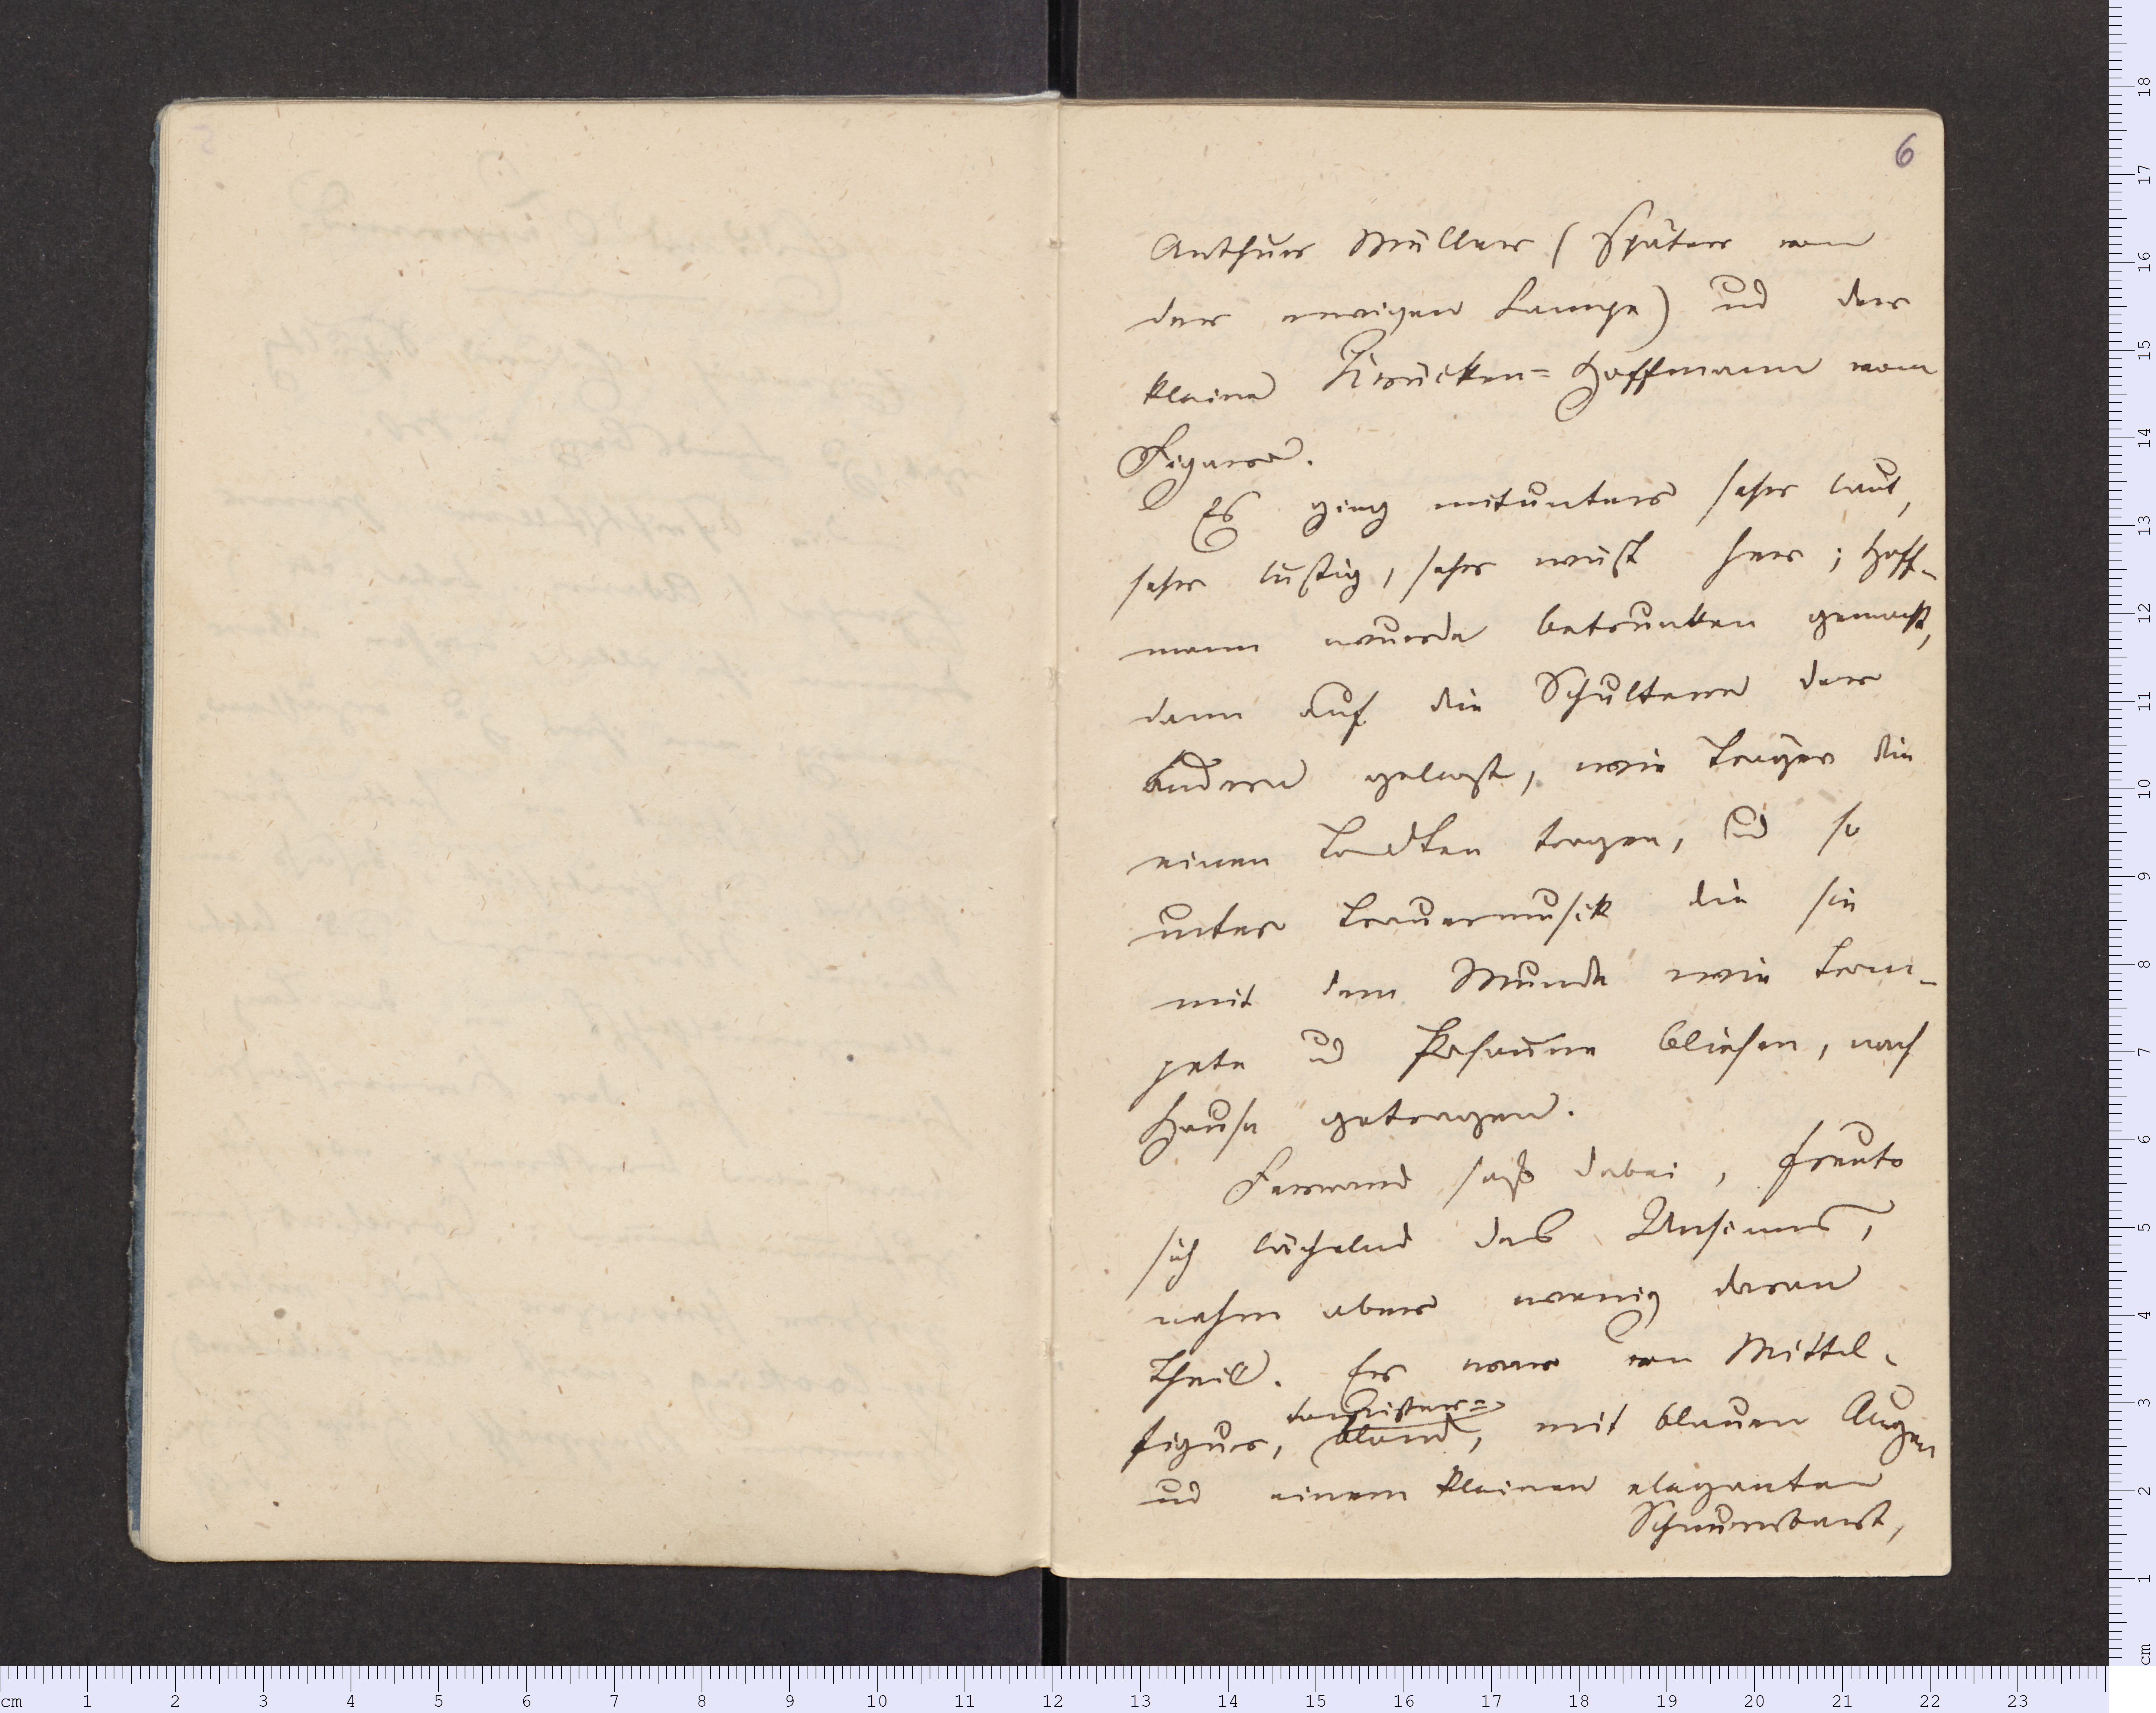 6
Arthur Müller (Später von
der ewigen Lampe) und der
kleine Krücken=Hoffmann vom
Figaro.
Es ging mitunter sehr laut,
sehr lustig, sehr wüst her; Hoff-
mann wurde betrunken gemacht,
dann auf die Schultern der
Andern gelegt, wie Träger die
einen Todten tragen, und so
unter Trauermusik die sie
mit dem Munde wie Trom-
pete und Posaune bliesen, nach
Hause getragen.
Fernand saß dabei, freute
sich lächelnd des Unsinns,
nahm aber wenig daran
Theil. Er war von Mittel-
figur, blond, mit blauen Augen
und einem kleinen eleganten
Schnurrbart,